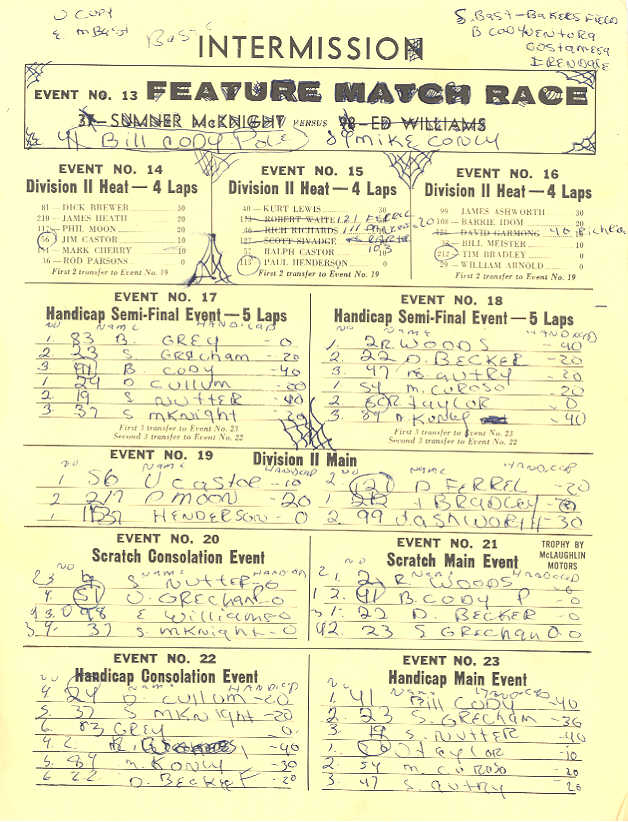 J COPY
& m BAST
BAST
S. BAST - BAKERSFIELD
B CODY VENTURA
COSTAMESA
IRENDALE
INTERMISSION
EVENT NO. 13 FEATURE MATCH RACE
37—SUMNER McKNIGHT VERSUS 98—ED WILLIAMS
41 Bill CODY Pole 84 MIKE CONLY
EVENT NO. 14
Division II Heat — 4 Laps
81—DICK BREWER 30
219—JAMES HEATH 20
117—PHIL MOON 20
56—JIM CASTOR 10
MARK CHERRY 10
36—ROD PARSONS 0
First 2 transfer to Event No. 19
EVENT NO. 15
Division II Heat — 4 Laps
40—KURT LEWIS 30
ROBERT WAITE 121 FERREL 20
RICH RICHARDS
127—SCOTT SIVADGE
57 RALPH CASTOR 103
PAUL HENDERSON 0
First 2 transfer to Event No. 19
EVENT NO. 16
Division II Heat — 4 Laps
99 JAMES ASHWORTH 30
108—BARRIE IDOM 20
DAVID GARMONG 40
38—BILL MEISTER 10
212—TIM BRADLEY 0
29—WILLIAM ARNOLD 0
First 2 transfer to Event No. 19
EVENT NO. 17
Handicap Semi-Final Event — 5 Laps
NO NAME HANDICAP
1. 83 B. GREY -0
2. 23 S GRECHAM -20
3. 41 B. CODY -40
1 24 D CULLUM -20
2 19 S NUTTER -40
3. 37 S MKNIGHT -20
First 3 transfer to Event No. 23
Second 3 transfer to Event No. 22
EVENT NO. 18
Handicap Semi-Final Event — 5 Laps
NO NAME HANDICAP
1. 2 R. WOODS -40
2 22 D. BECKER -20
3. 47 S AUTRY -20
1 54 M. CUROSO -20
2 60 J TAYLOR -0
3 84 M KONLY -40
First 3 transfer to Event No. 23
Second 3 transfer to Event No. 22
EVENT NO. 19 Division II Main
NO NAME HANDICAP NO NAME HANDICAP
1 56 J CASTOR -10
2 217 P MOON -20
1 HENDERSON -0
2 121 D FERREL -20
1 212 T BRADLEY
2. 99 J ASHWORTH -30
EVENT NO. 20
Scratch Consolation Event
NO NAME HANDICAP
S NUTTER -0
4. 51 J. GRECHAN -0
98 E Williams 0
3 4. 37 S. MKNIGHT -0
EVENT NO. 21
Scratch Main Event
TROPHY BY
McLAUGHLIN
MOTORS
NO NAME HANDICAP
2 1. 2 R WOODS -0
1 2. 41 B. CODY P -0
3 1. 22 D. BECKER -0
4 2. 23 S GRECHAN 0
EVENT NO. 22
Handicap Consolation Event
NAME HANDICAP
4. 24 D. CULLUM -20
5. 37 S MKNIGHT -20
6. 83 GREY 0
4 2. -40
5. 84 M. KONLY -30
6 22 D. BECKER -20
EVENT NO. 23
Handicap Main Event
NO NAME HANDICAP
1. 41 Bill CODY -40
2. 23 S. GRECHAM -30
3. 19 S. NUTTER -40
1. 60 J TAYLOR -10
2. 54 M. CUROSO -20
3. 47 S. AUTRY -20